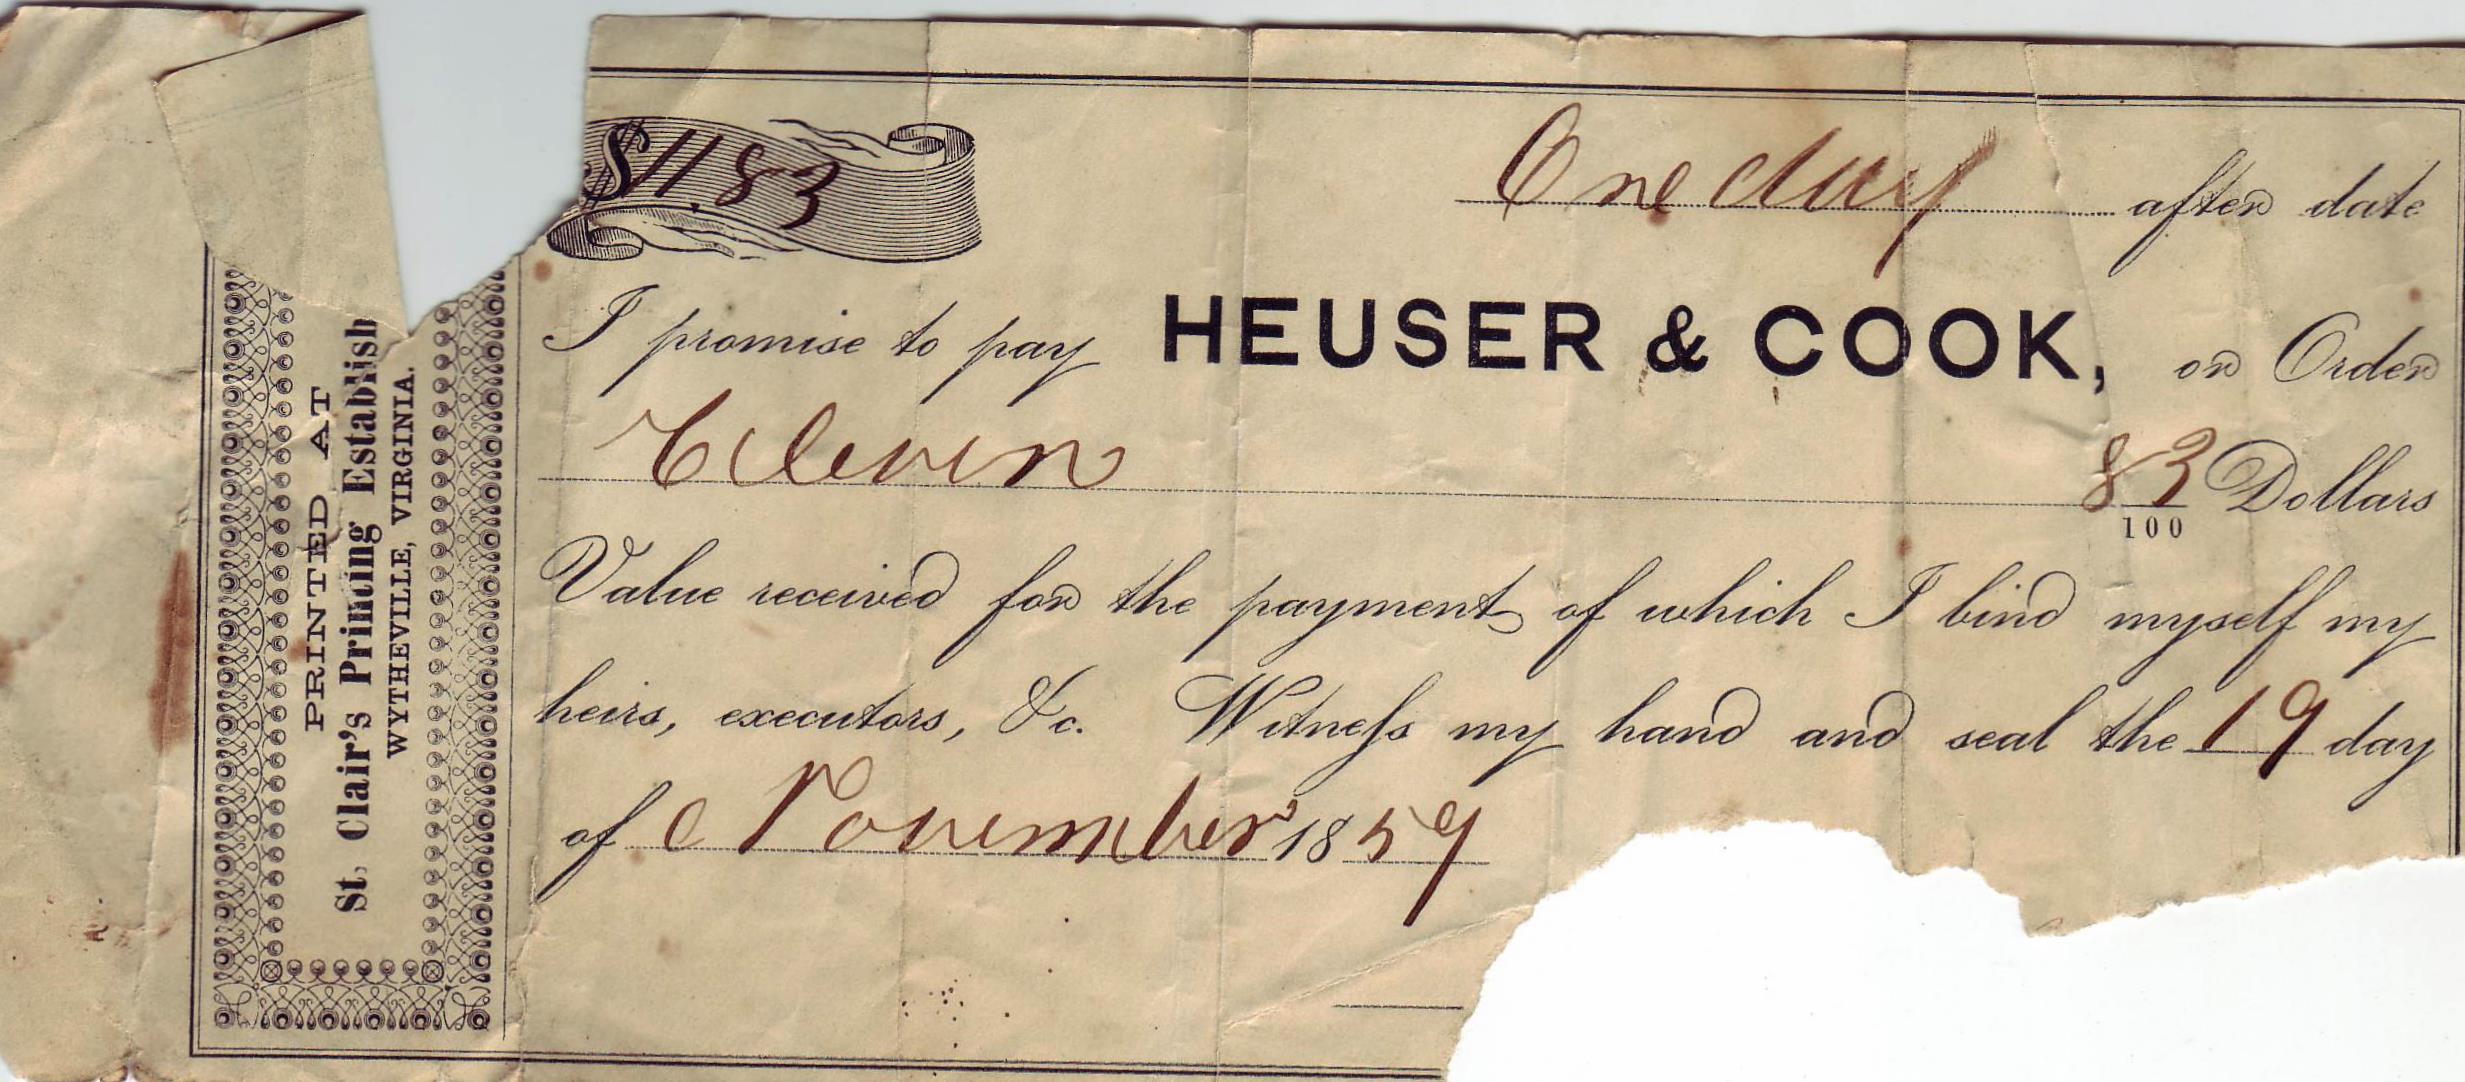 $11.83
One day after date
I promise to pay HEUSER & COOK, or Order
Eleven 83/100 Dollars
Value received for the payment of which I bind myself my
heirs, executors, &c. Witness my hand and seal the 19 day
of November 1859
PRINTED AT
St. Clair's Printing Establish
WYTHEVILLE, VIRGINIA.